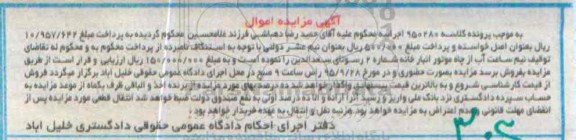 آگهی مزایده اموال
به موجب پرونده کلاسه ۹۵۰۲۸۰ اجراییه محکوم علیه آقای حمید رضا دهباشی فرزند غلامحسین محکوم گردیده به پرداخت مبلغ ۱۰/۹۵۷/۶۴۴
ریال بعنوان اصل خواسته و پرداخت مبلغ ۵۰۰/۰۰۰ ریال بعنوان نیم عشر دولتی با توجه به استنکاف نامبرده از پرداخت محکوم به و محکوم له تقاضای
توقیف نیم ساعت آب از چاه موتور انبار خانه شماره ۲ روستای سعدالدین را نموده است و به مبلغ ۱۵۰/۰۰۰/۰۰۰ ریال ارزیابی و قرار است از طریق
مزایده بفروش برسد مزایده بصورت حضوری و در مورخ ۹۵/۹/۲۸ راس ساعت ۹ صبح در محل اجرای دادگاه عمومی حقوقی خلیل آباد برگزار میگردد فروش
از قیمت کارشناسی شروع و به بالاترین قیمت واگذار خواهد شد ده درصد بهای مورد مزایده از برنده اخذ و الباقی ظرف یکماه از موعد مزایده به
حساب سپرده دادگستری نزد بانک ملی واریز و رسید آنرا ارائه و الا ده درصد اولی به نفع صندوق دولت ضبط خواهد شد انتقال قطعی مورد مزایده پس از
انقضای مهلت قانونی و عدم اعتراض به مزایده خواهد بود هزینه نقل و انتقال به عهده خریدار خواهد بود
دفتر اجرای احکام دادگاه عمومی حقوقی دادگستری خلیل آباد